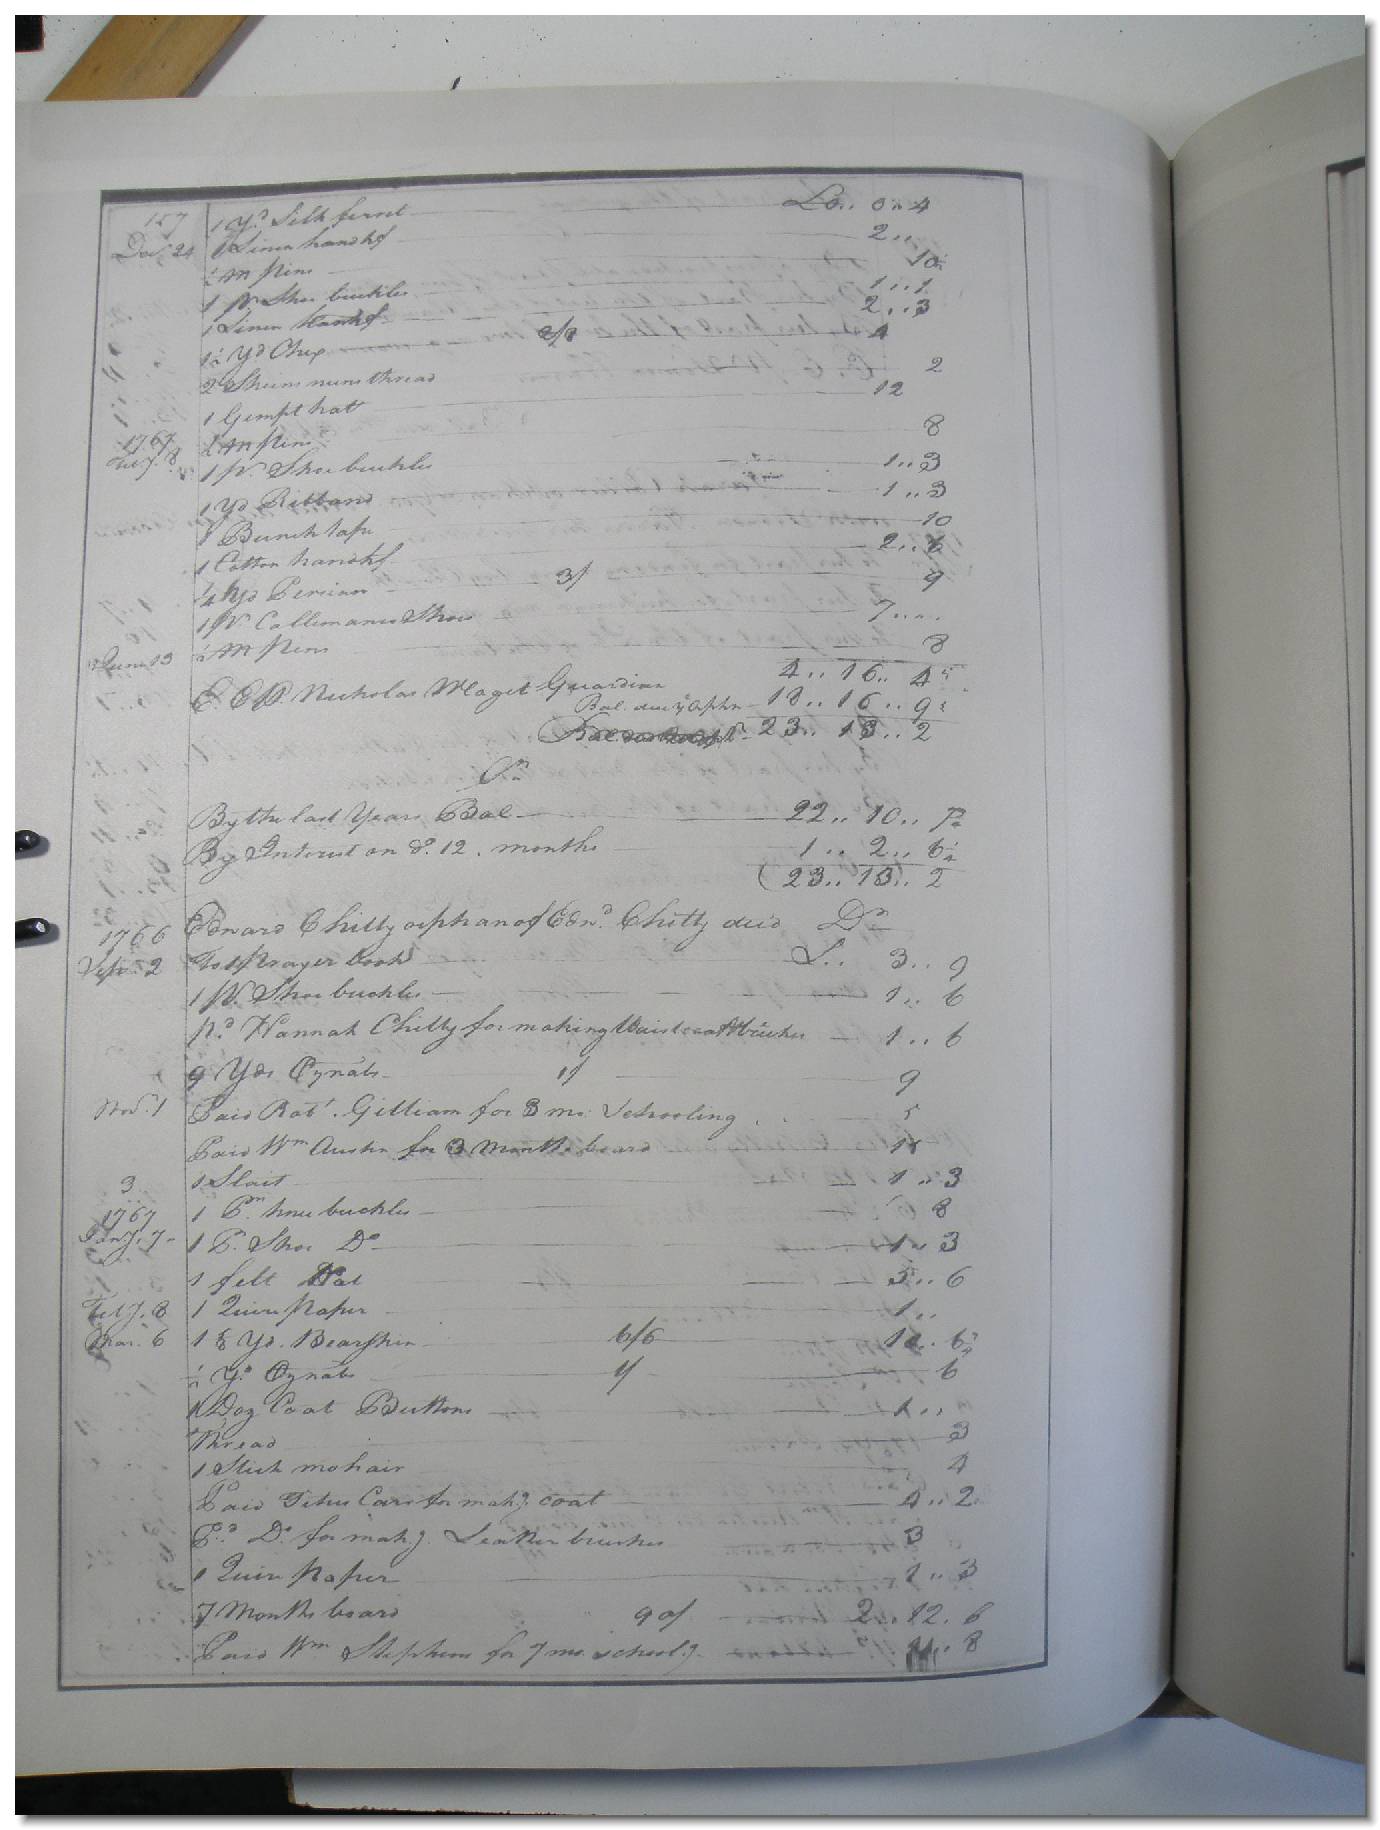 157 1 Yd. Silk ferret £0.. 0.. 4
Dec. 24 1 Linen handkf 2..
½ M pins 10
1 pr. Shoe buckles 1..1
1 Linen Handkf 2..3
1½ Yd Chex 2/8 4
2 Skeins nuns thread 2
1 Gempt hat 12
1767 ½ M pins 8
Feby. 8 1 pr. Shoe buckles 1..3
1 Yd Ribband 1..3
1 Bunch tape 10
1 Cotton handkf 2..6
¼ Yd Persian 3/ 9
1 pr. Callimanco Shoes 7..
June 13 ½ M pins 8
4..16.. 4
E. E. P. Nicholas Maget Guardian
Bal. due ye orphn 18..16.. 9
23.. 13.. 2
Cr
By the last Years Bal 22.. 10.. 7
By Interest on do. 12. months 1.. 2.. 6
(23.. 13.. 2
Edward Chitty orphan of Edwd. Chitty decd Dr
1766
Sepr. 2 To 1 prayer book £.. 3.. 9
1 pr. Shoe buckles 1.. 6
pd. Hannah Chitty for making Waistcoat & britches 1.. 6
9 Yds Oznabs 1/ 9
Novr. 1 Paid Robt. Gilliam for 3 mo. Schooling 5
Paid Wm Austin for 3 Months board
3 1 Slait 1..3
1767 1 Pr. knee buckles 8
Jany. 7 1 P. Shoe Do 1..3
1 felt Hat 5..6
Feby. 8 1 Quire paper 1..
Mar. 6 1⅝ Yd. Bearskin 6/6 10.. 6¾
½ Yd Oznabs 1/ 6
1 Doz Coat Buttons 1..
Thread 3
1 Stick mohair 4
Paid Titus Cars for makg. coat 4..2
Pd. Do. for makg. Leather briches 3
1 Quire paper 1..3
7 Months board 90/ 2..12.6
Paid Wm Stephens for 7 mo. schoolg. 8